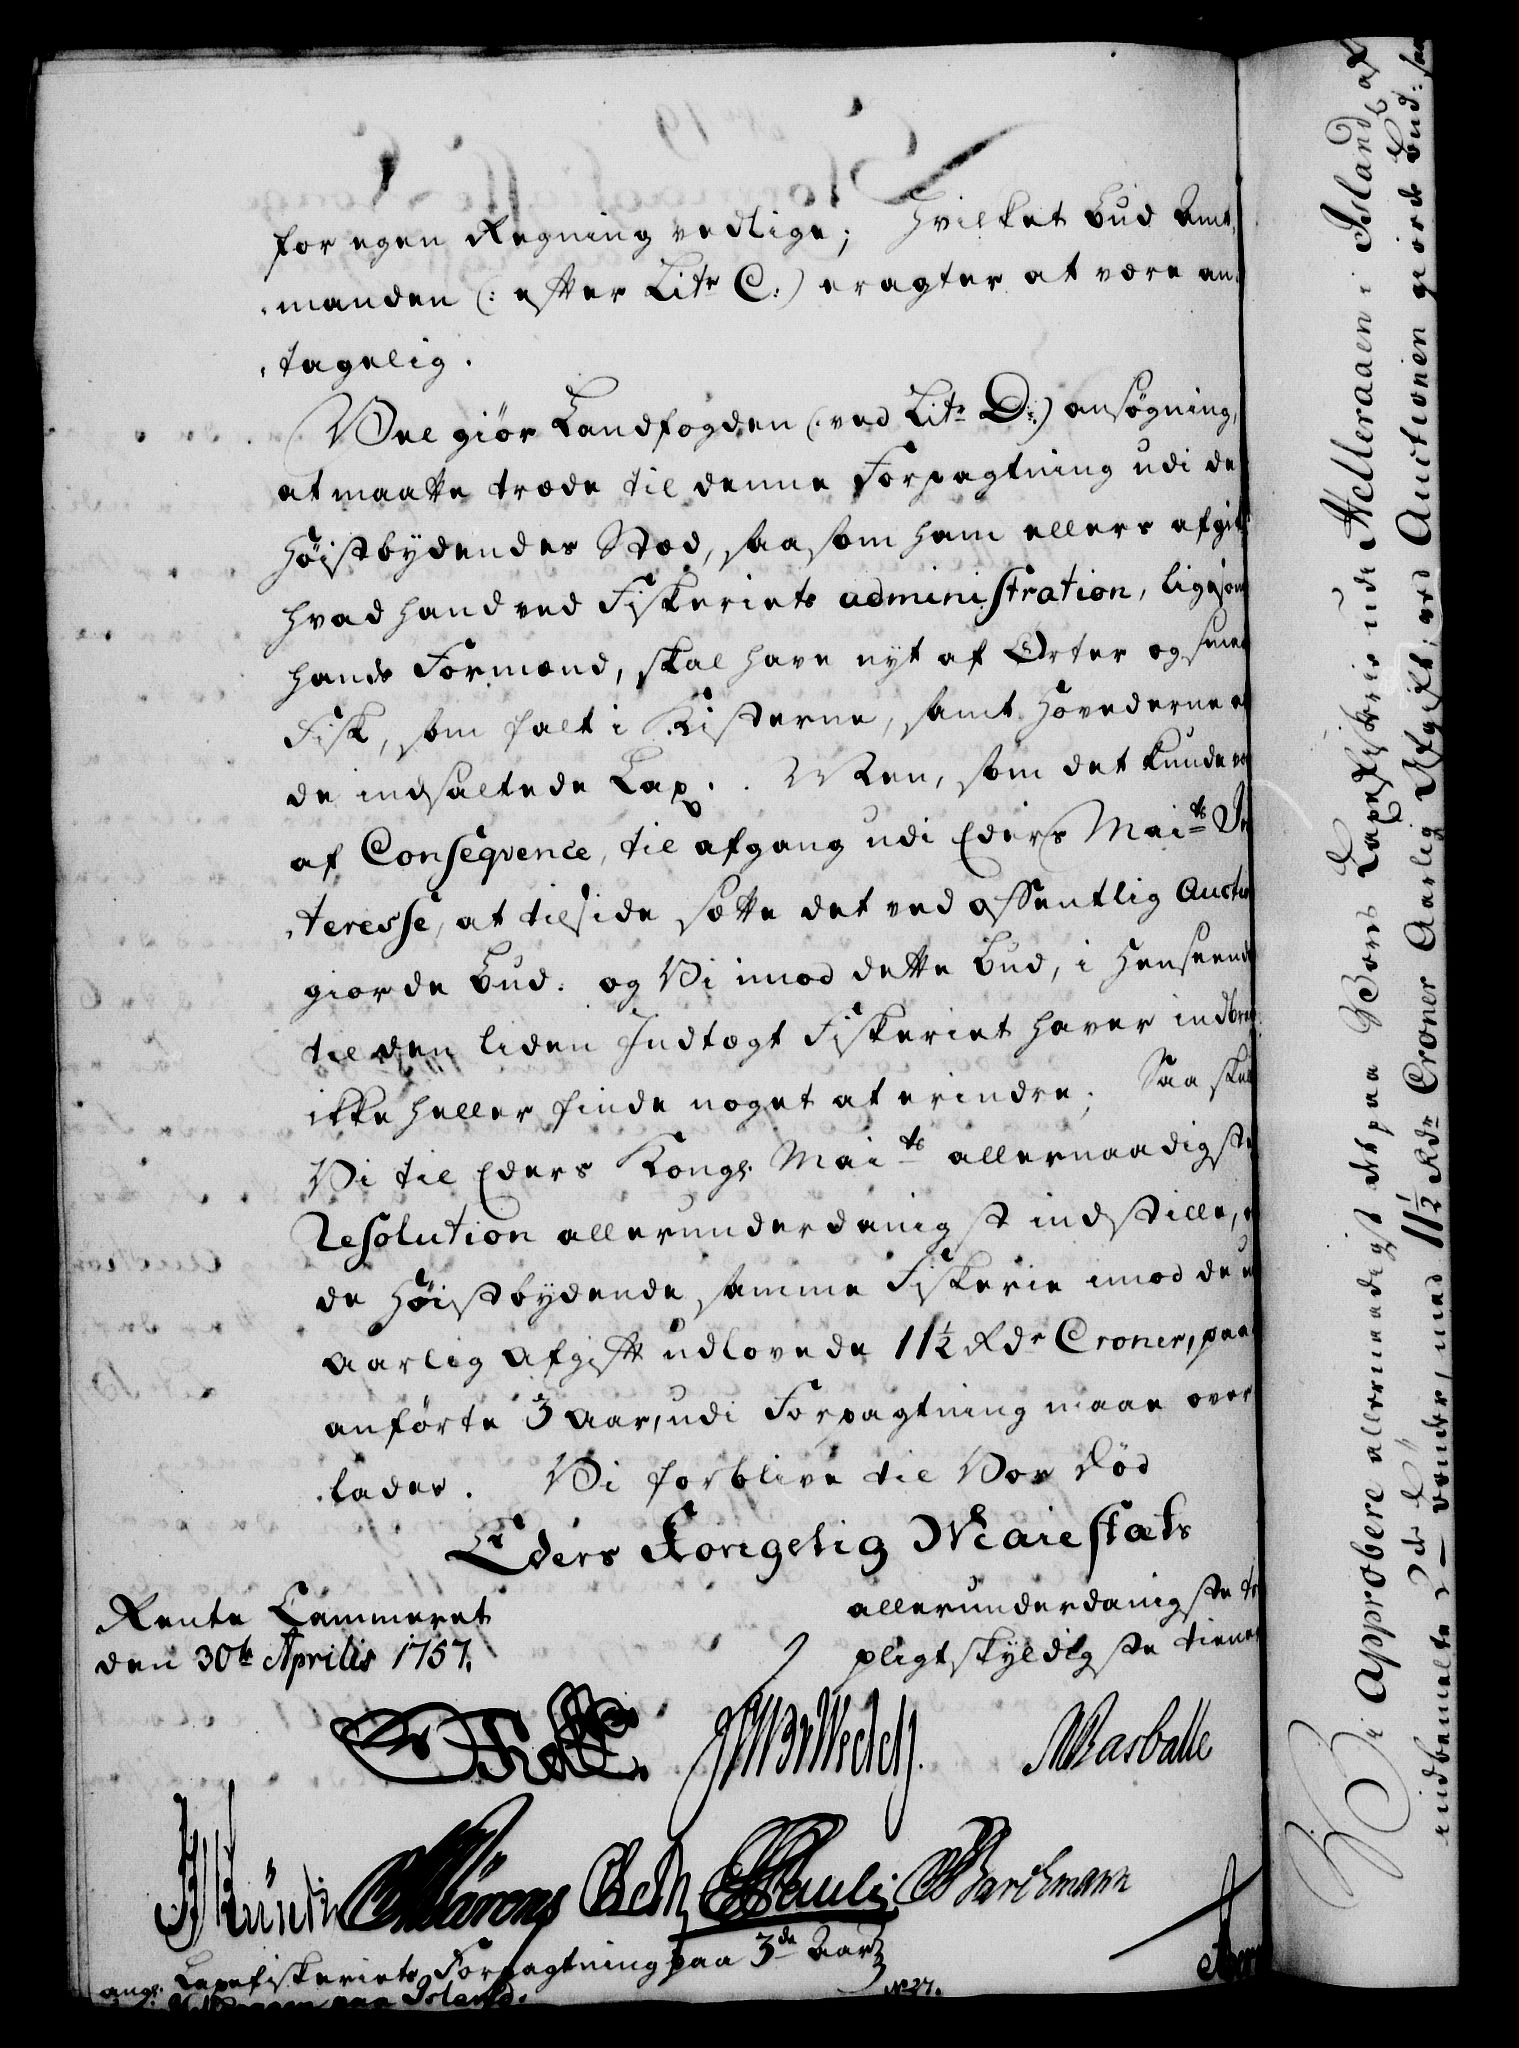 for egen Regning vedlige; hvilket Bud Amt
manden (: efter Litr C:) eragter at være an
tagelig.
Vel giør Landfogden (: ved Litr D:) ansøgning,
at maatte træde til denne Forpagtning udi de
Høistbydendes Stæd, saasom ham ellers afgik
hvad hand ved Fiskeriets administration, ligesom
hands Formænd, skal have nyt af Ørter og smaa
Fisk, som falt i Kisterne, samt Hovederne af
de indsaltede Lax. Men, som det kunde være
af Conseqvence, til afgang udi Eders Maits In
teresse, at tilside sætte det ved offentlig Auction
giorde Bud: og Vi imod dette Bud, i Henseende
til den liden Indtægt Fiskeriet haver indbragt
ikke heller finde noget at erindre; Saa skal
Vi til Eders Kongl. Maits allernaadigste
Resolution allerunderdanigst indstille,
de Høistbydende samme Fiskerie imod de
aarlig Afgift udlovede 11½ Rdr Croner, paa
anførte 3 Aar, udi Forpagtning maae over
lades. Vi forblive til Vor Død
Eders Kongelig Maiestæts
Rente Cammeret
den 30te Aprilis 1757.
allerunderdanigste
pligtskyldigste tiener
Masballe
Pauli
Barchmann
ang: Laxefiskeriets Forpagtning paa 3de Aar
paa Island.
No 27.
Vi approbere allernaadigst det paa Vores Laxefiskerie udi Helleraaen i Island af
indbemelte 2de Bønder, med 11½ Rdr Croner Aarlig Afgift, ved Auctionen giorde Bud: saa